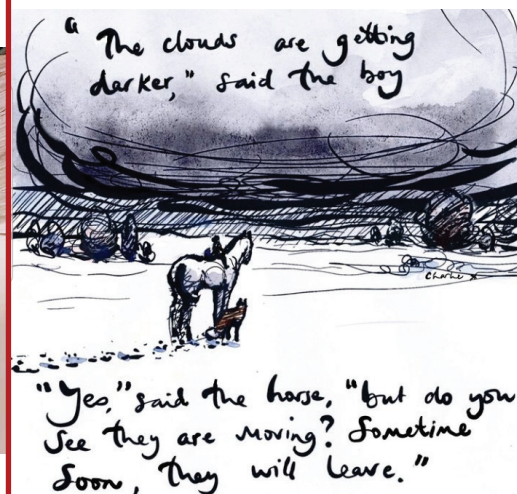 "The clouds are getting
darker," said the boy
Charlie x
"Yes," said the horse, "but do you
see they are moving? Sometime
soon, they will leave."